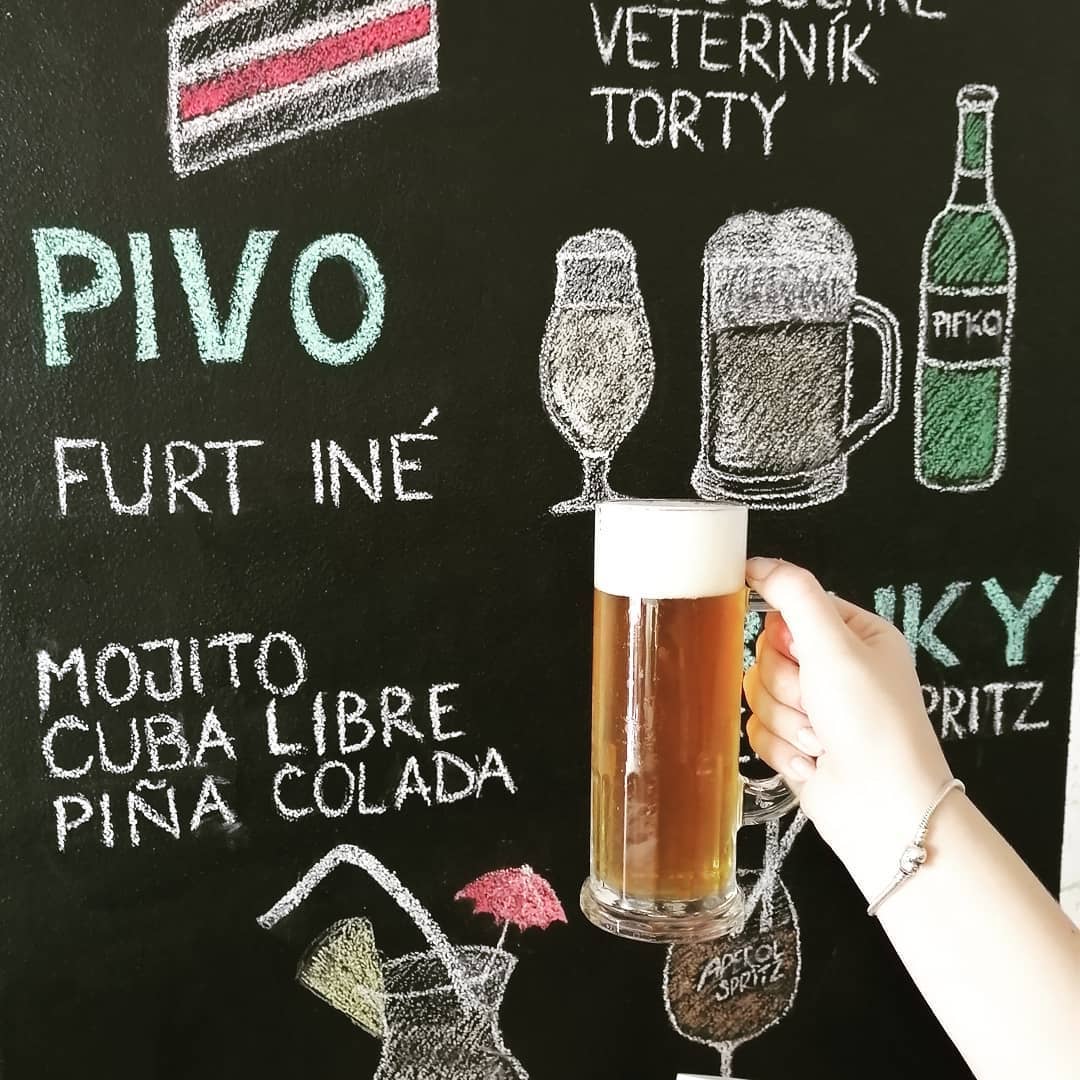 VETERNÍK
TORTY
PIVO
PIFKO
FURT INÉ
MOJITO
CUBA LIBRE
PIÑA COLADA
APEROL
SPRITZ